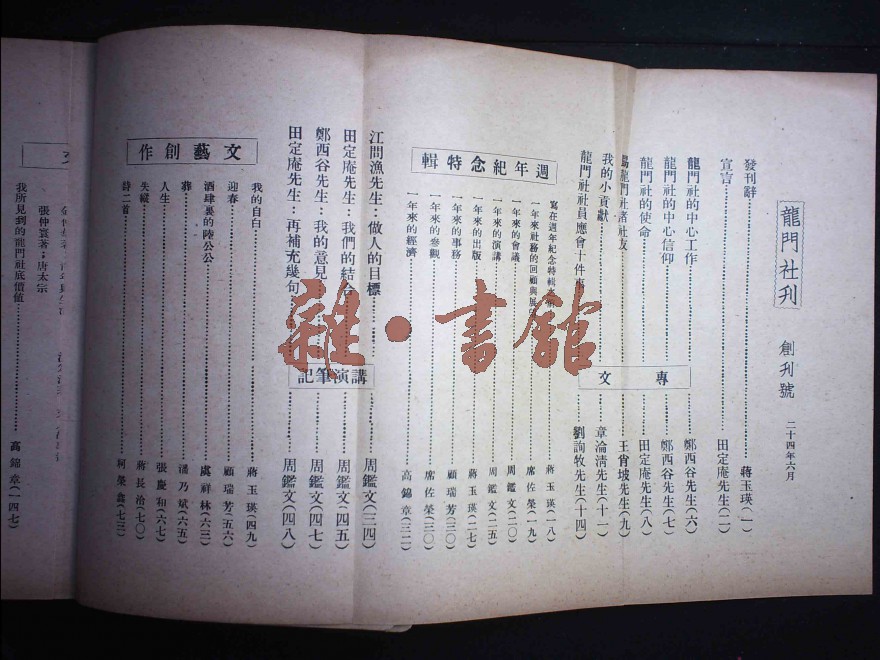 龍門社刊 創刊號 二十四年六月
發刊辭 蔣玉瑛(一)
宣言 田定庵先生(二)
專文
龍門社的中心工作 鄭西谷先生(六)
龍門社的中心信仰 鄭西谷先生(七)
龍門社的使命 田定庵先生(八)
爲龍門社諸社友 王耆坡先生(九)
我的小貢獻 章淪清先生(十一)
龍門社社員應會十件事 劉詢牧先生(十四)
週年紀念特輯
寫在週年紀念特輯 蔣玉瑛(一八)
一年來社務的回顧與展 席佐榮(一九)
一年來的會議 周鑑文(二〇)
一年來的演講 周鑑文(二五)
一年來的出版 蔣玉瑛(二七)
一年來的事務 顧瑞芳(三〇)
一年來的參觀 席佐榮(三〇)
一年來的經濟 高錦章(三二)
講演筆記
江問漁先生:做人的目標 周鑑文(三四)
田定庵先生:我們的結合 周鑑文(四五)
鄭西谷先生:我的意見 周鑑文(四七)
田定庵先生:再補充幾句 周鑑文(四八)
文藝創作
我的自白 蔣玉瑛(四九)
迎春 顧瑞芳(五六)
酒肆裏的陸公公 虞祥林(六三)
葬 潘乃斌(六五)
人生 張慶和(六七)
失蹤 蔣長治(七〇)
詩二首 柯榮鑫(七三)
文
張仲寰著:唐太宗
我所見到的龍門社底價値 高錦章(一四七)
雜·書館